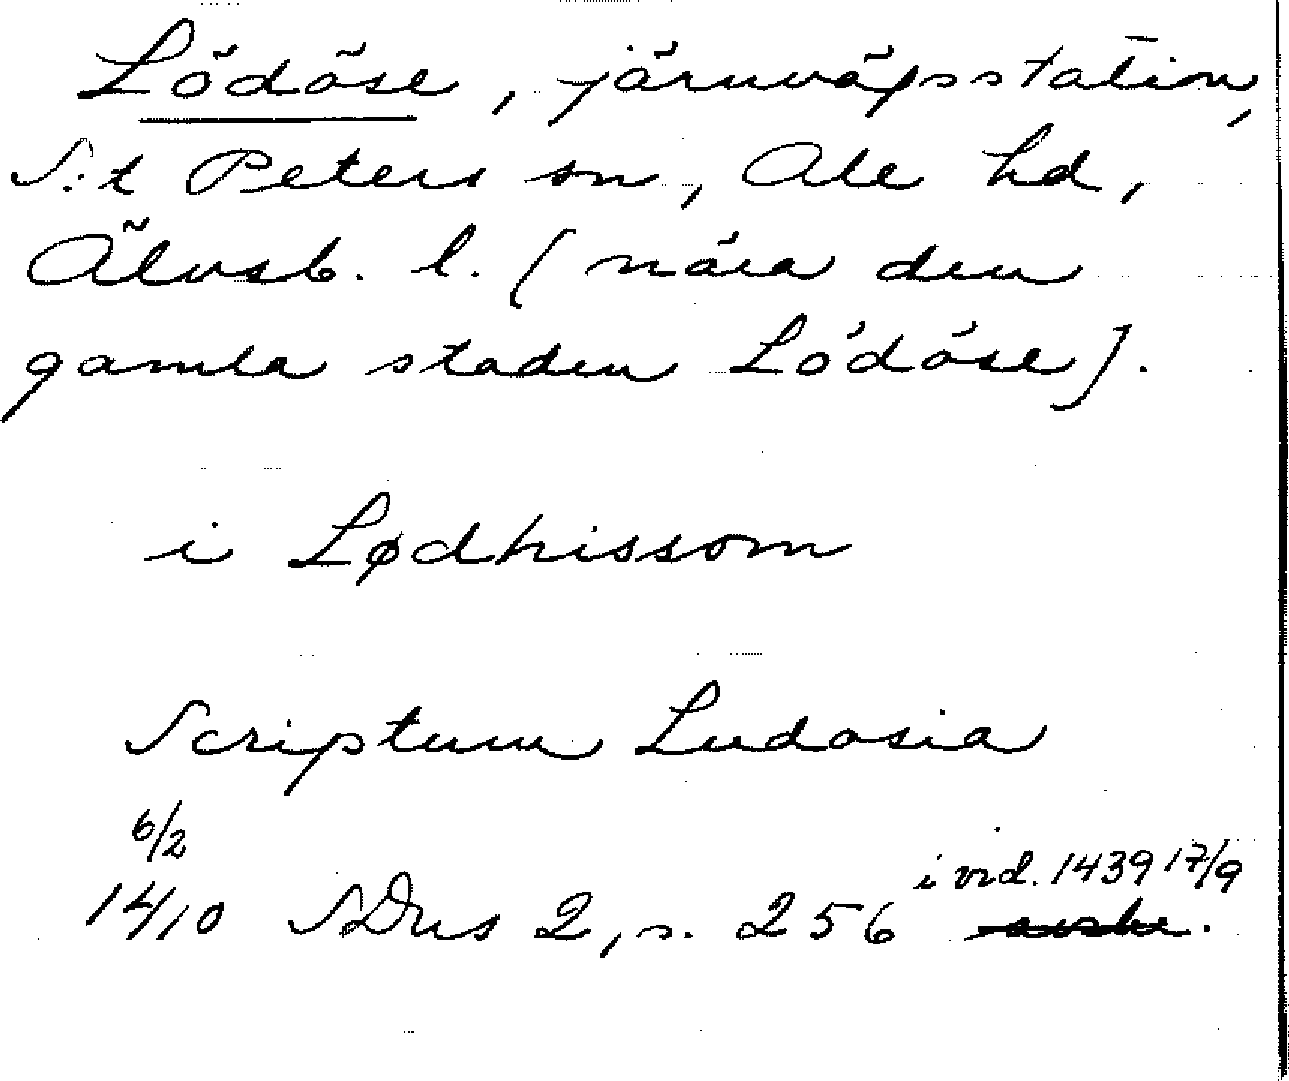 Lödöse, järnvägsstation,
S:t Peters sn, Ale hd,
Älvsb. l. (nära den
gamla staden Lödöse).
i Lødhissom
Scriptum Ludosia
6/2
i vid. 1439 17/9
1410 SDns 2, s. 256